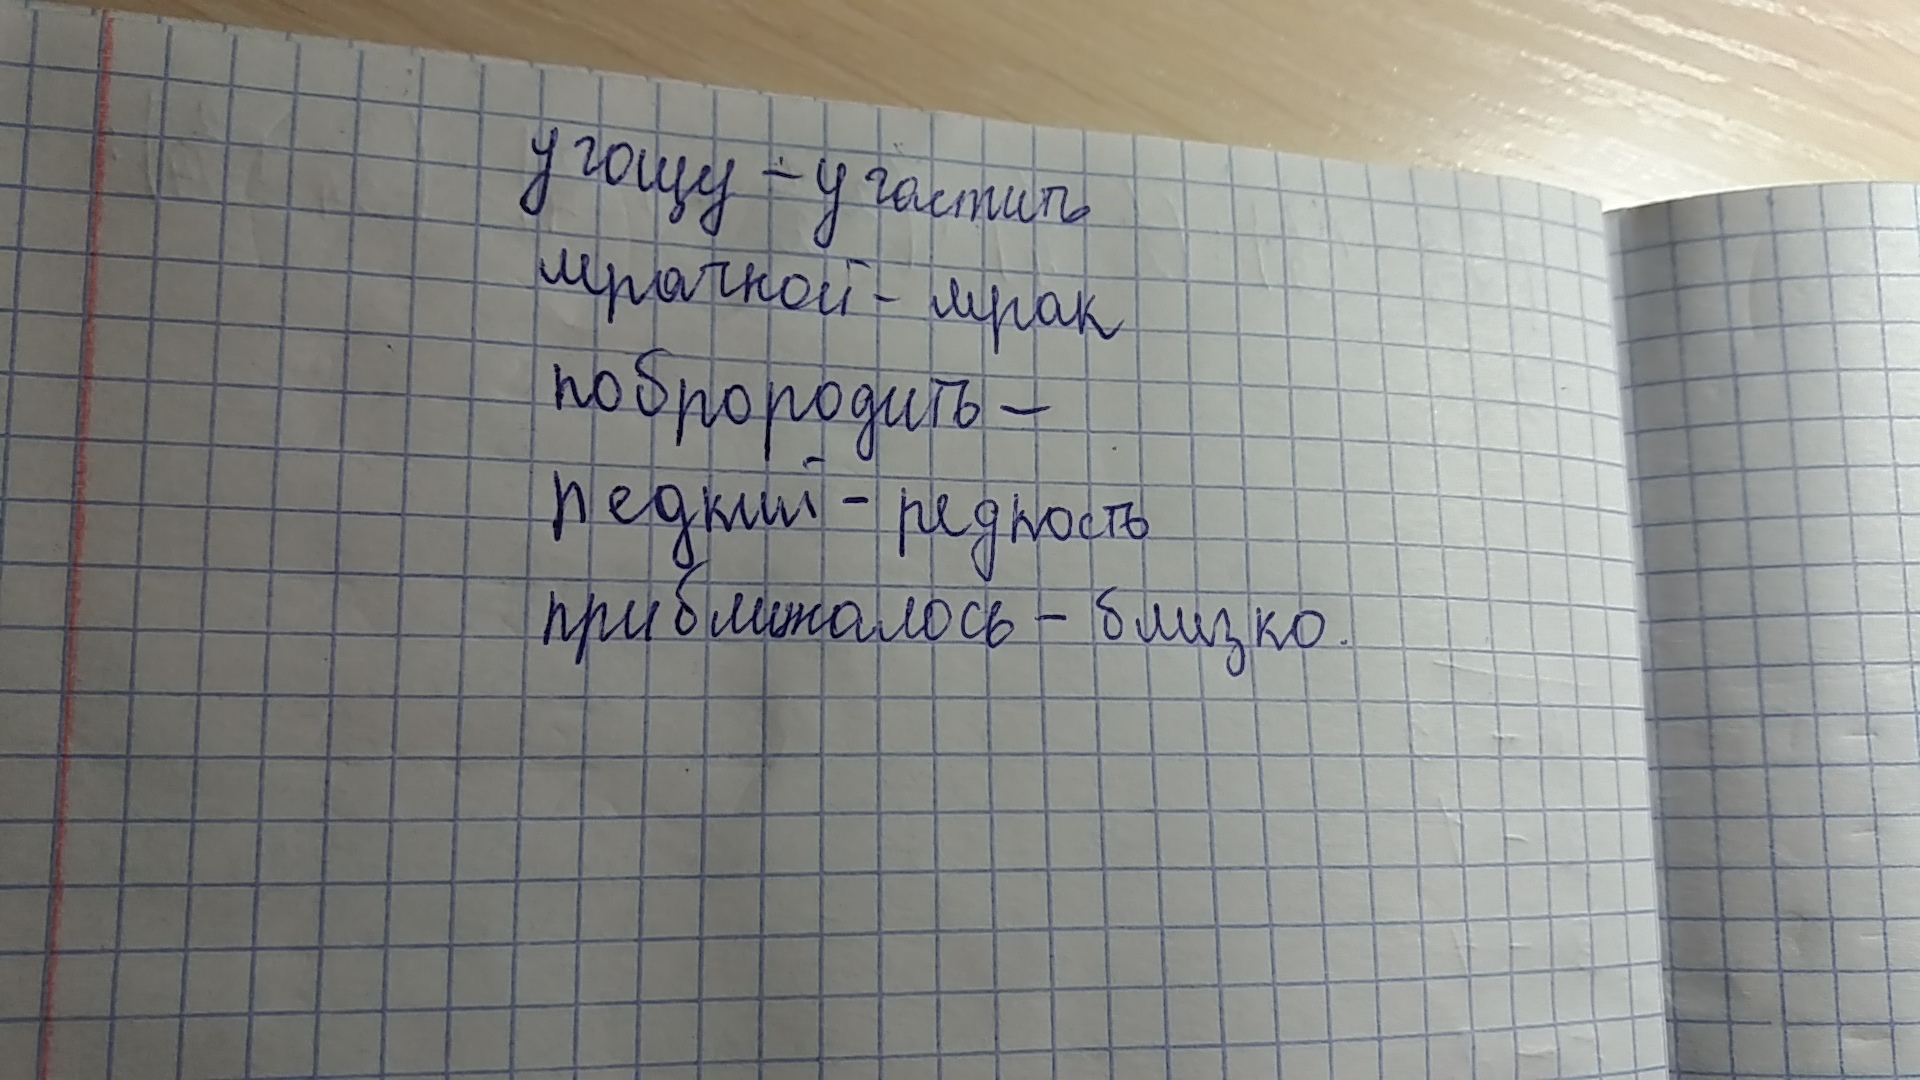 угощу - угостить
мрачной - мрак
побрродить -
редкий - редкость
приближалось - близко.